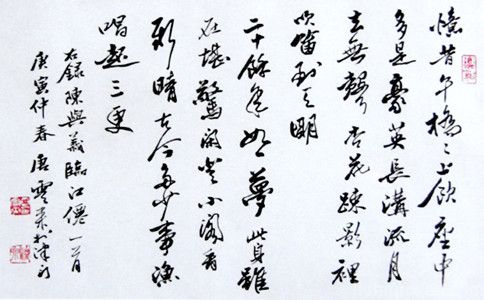 憶昔午橋〻上飲座中
多是豪英長溝流月
去無聲杏花疎影裡
吹笛到天明
二十餘年如一夢此身雖
在堪驚閒登小閣看
新晴古今多少事漁
唱起三更
右錄陳與義臨江僊一首
庚寅仲春唐雲来於津門